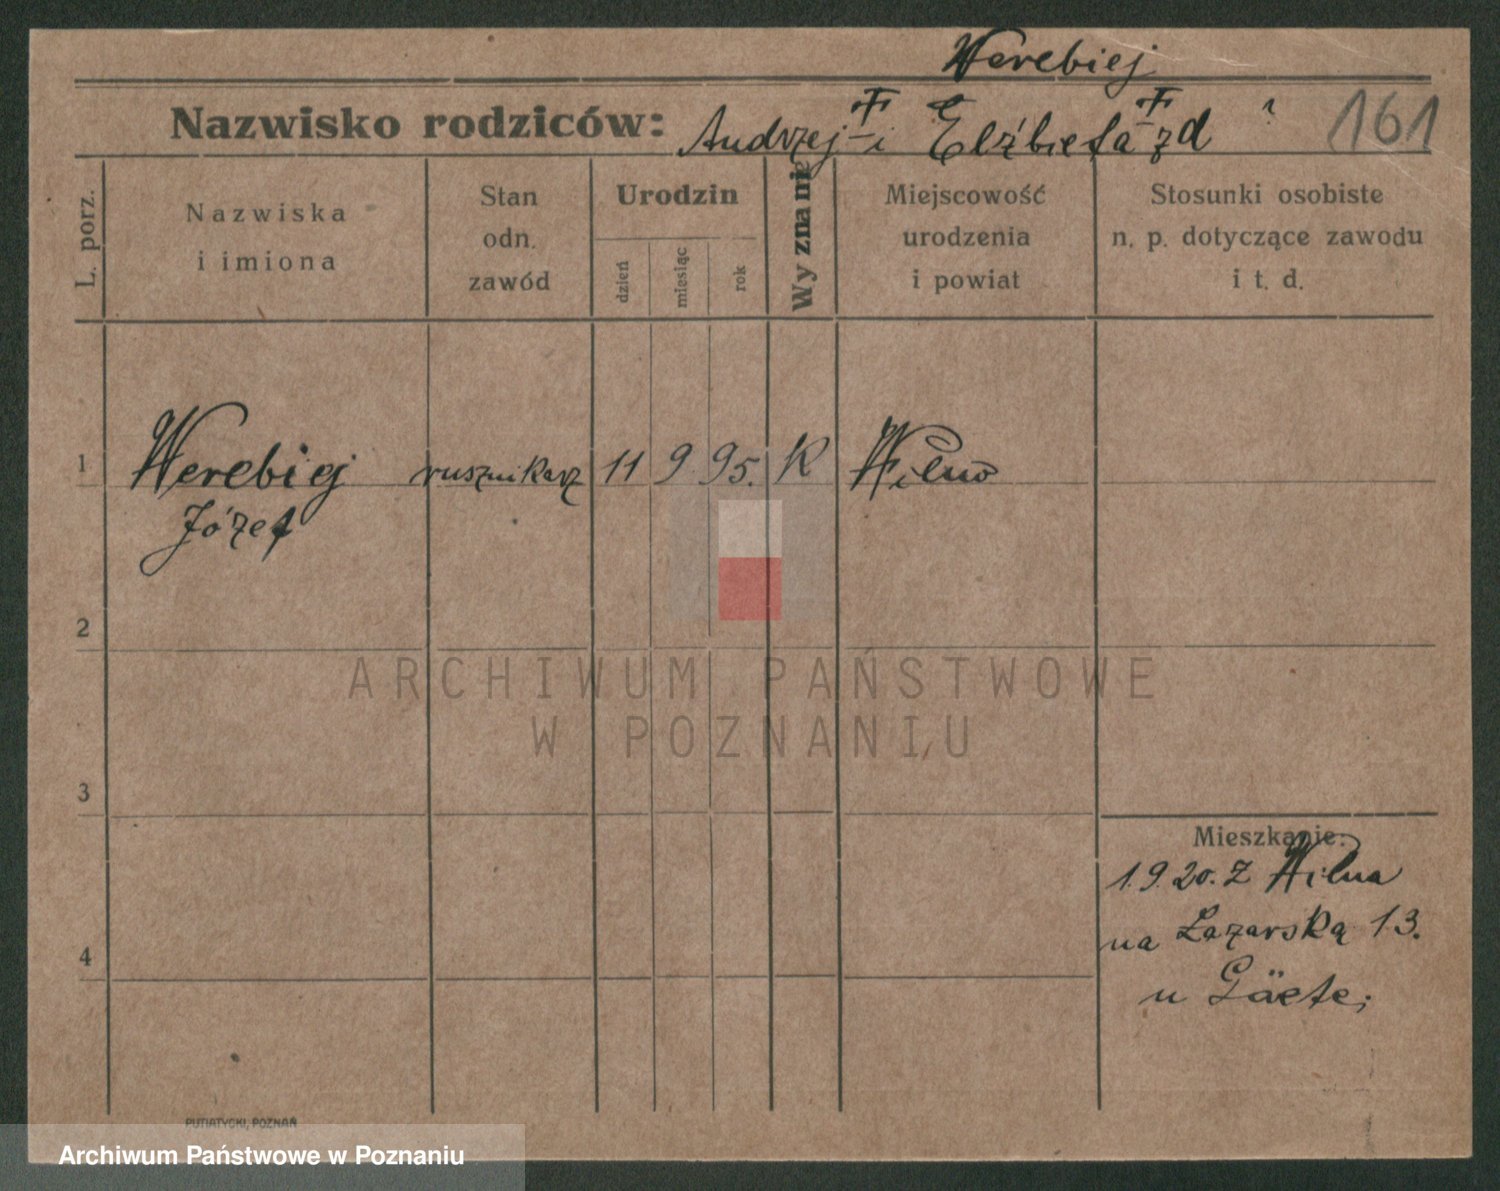 Werebiej
Nazwisko rodziców: Andrzej i Elżbieta zd ? 161
L. porz.
Nazwiska
i imiona
Stan
odn.
zawód
Urodzin
dzień
miesiąc
rok
Wyznanie
Miejscowość
urodzenia
i powiat
Stosunki osobiste
n. p. dotyczące zawodu
i t. d.
1 Werebiej rusznikarz 11 9 95. K Wilno
Józef
2
3
4
Mieszkanie:
1.9.20. z Wilna
na Łazarską 13.
u Gäete;
PUTIATYCKI, POZNAŃ
ARCHIWUM PAŃSTWOWE
W POZNANIU
Archiwum Państwowe w Poznaniu